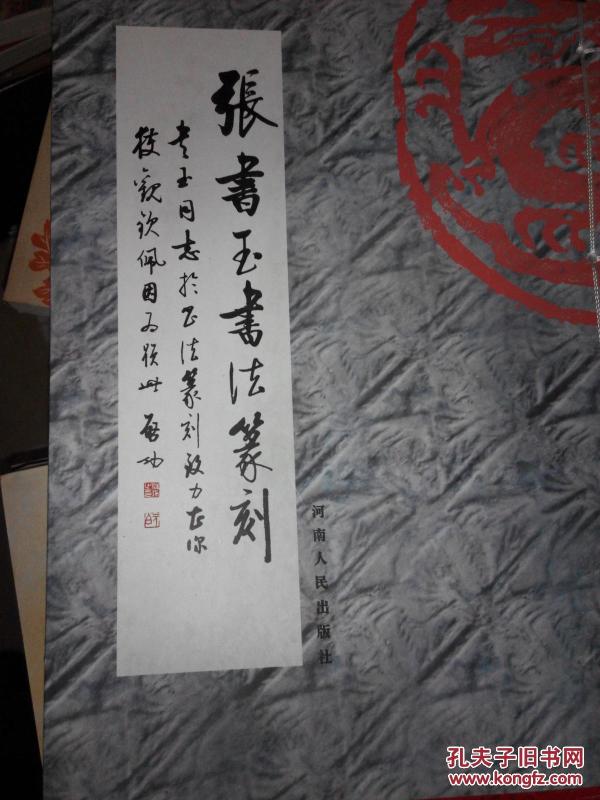 張書玉書法篆刻
書玉同志於書法篆刻致力甚深
獲觀欽佩因为題此 啓功
河南人民出版社
孔夫子旧书网
www.kongfz.com